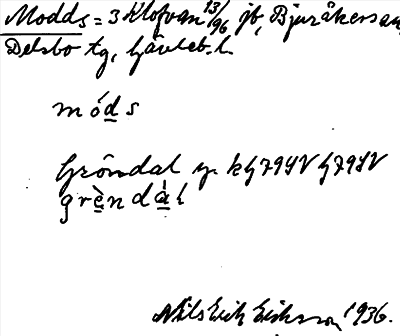 Modds = 3 Klofvan 13/96 jb, Bjuråkers sn,
Delsbo tg, Gävleb. l.
móds
Gröndal y. kG79SV G79SV
grèndál
Nils Erik Eriksson 1936.